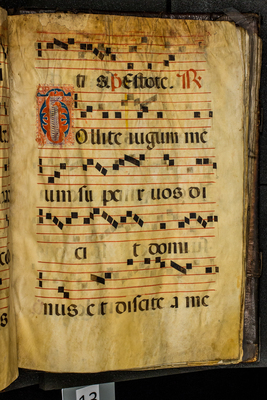 ti s. ꝟ Estote. ℟
Tollite iugum me
um su per uos di
cit domi
nus et discite a me